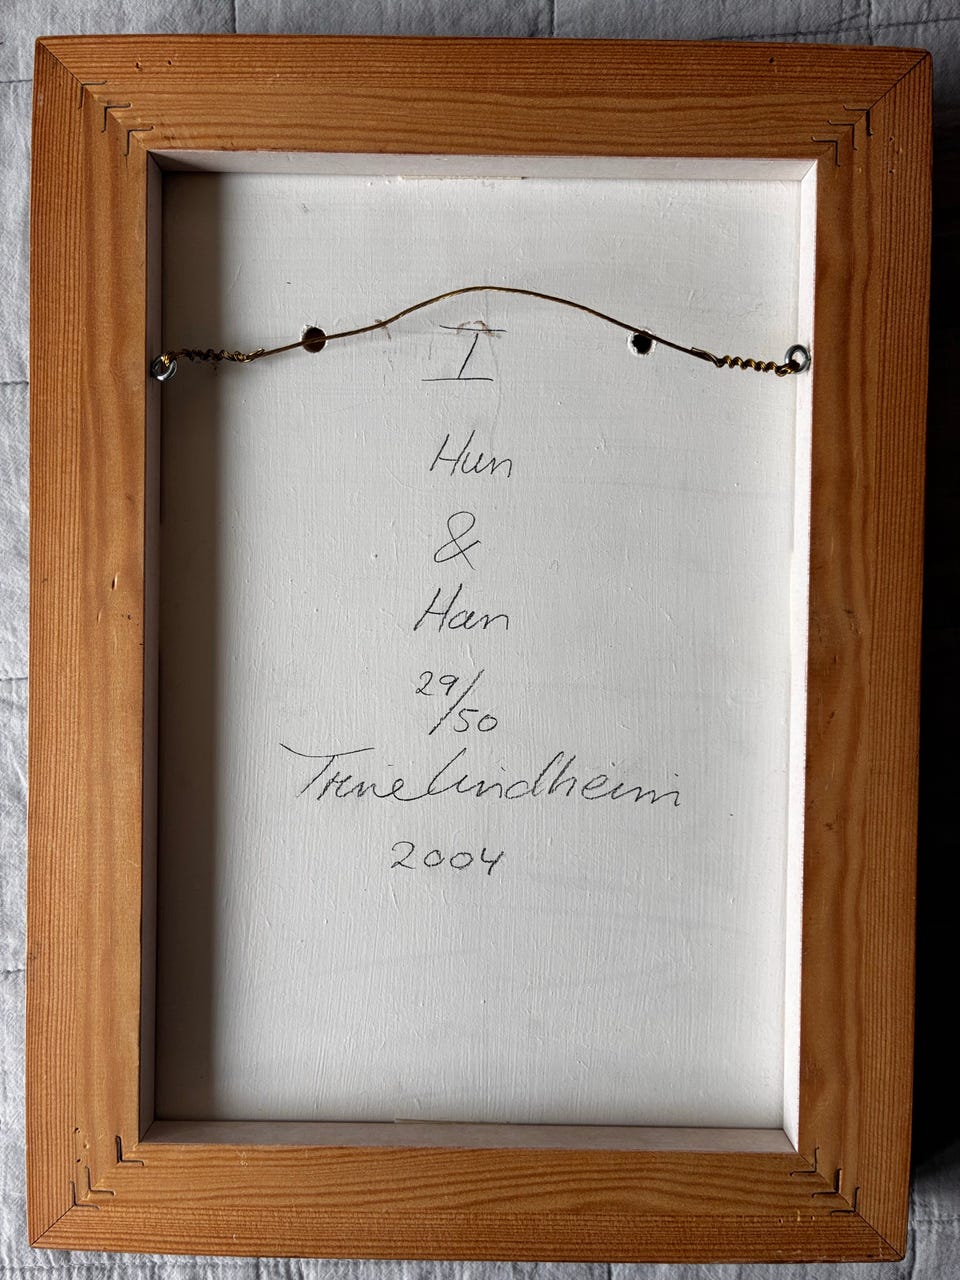 I
Hun
&
Han
29/50
Trine Lindheim
2004